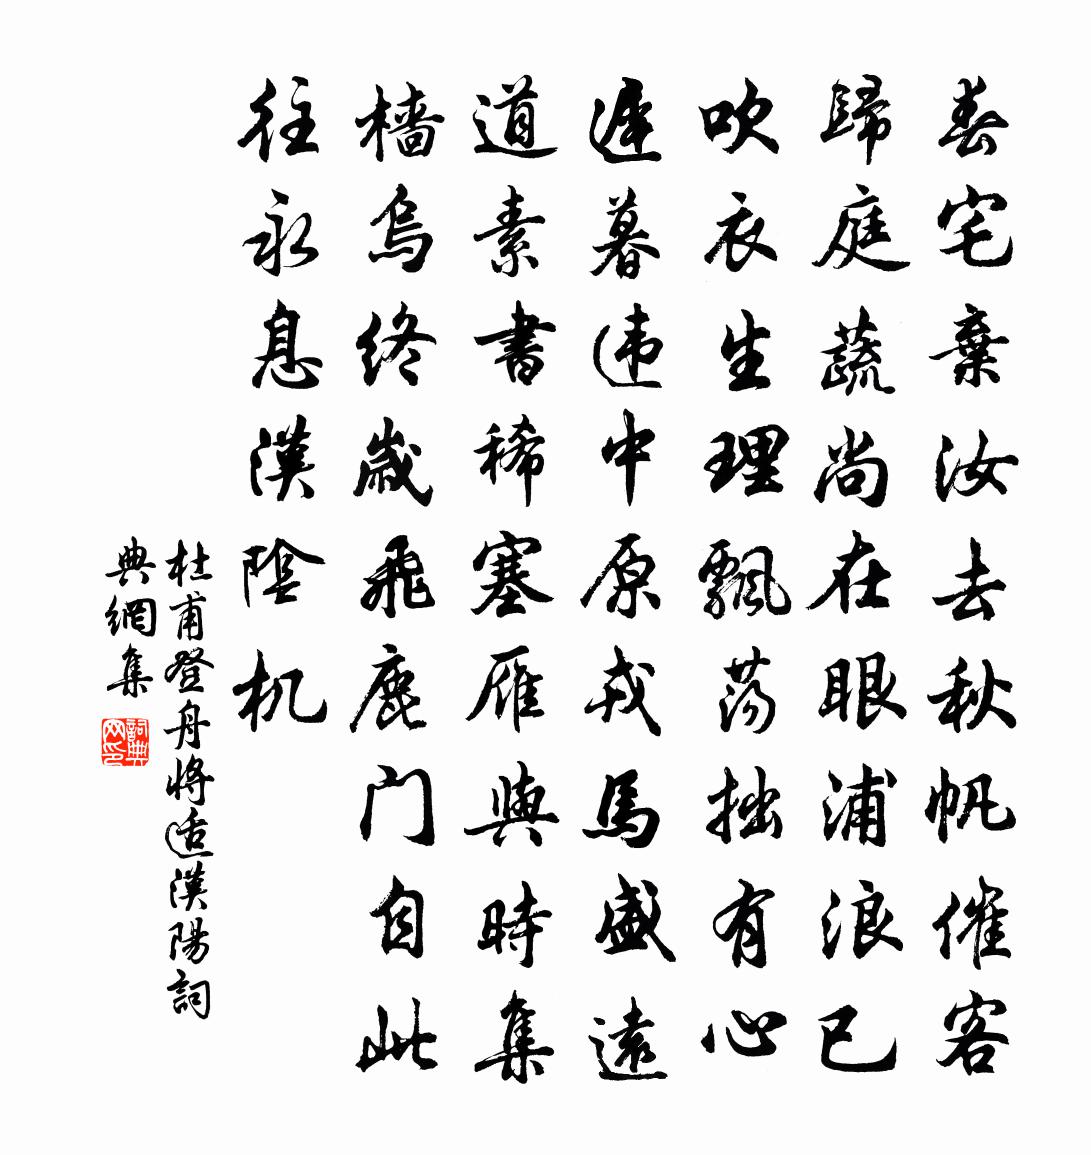 春宅棄汝去秋帆催客
歸庭蔬尚在眼浦浪已
吹衣生理飄蕩拙有心
遲暮违中原戎馬盛遠
道素書稀塞雁與時集
檣烏終歲飛鹿门自此
往永息漢陰机
杜甫登舟将适漢陽詞
典網集
詞典
网印